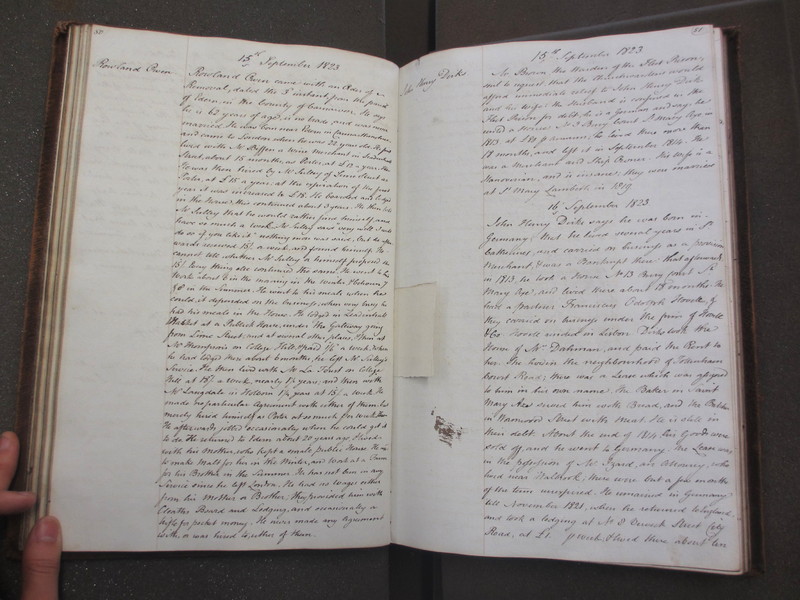 50
15th September 1823
Rowland Owen
Rowland Owen came with an Order of
Removal, dated the 5 instant from the parish
of Edern, in the County of Carnarvon. He says
he is 62 years of age, is no trade, and was never
married. He was born near Edern in Carnarvonshire
and came to London when he was 22 years old. He first
lived with Mr Puffen a Wine Merchant in Leadenhall
Street, about 15 months, as Porter, at £12 a year. He
He was then hired by Mr Sulley of Lime Street as
Porter, at £15 a year. at the expiration of the first
year it was increased to £18. He boarded and lodged
in the House: this continued about 3 years. He then told
Mr Sulley that he would rather find himself, and
have so much a week. Mr Sulley said very well I will
do so if you like it: nothing more was said. But he after
wards received 15/ a week, and found himself. He
cannot tell, whether Mr Sulley or himself proposed the
15/. Every thing else continued the same. He went to his
Work about 8 in the morning in the winter, & before 7
& 6 in the Summer. He went to his meals when he
could, it depended on the business; when very busy he
had his meals in the House. He lodged in Leadenhall
Market at a Publick House, under the Gateway going
from Lime Street; and at several other places, than at
Mr Thompson's on College Hill, & paid 2/6 a week. When
he had lodged there about 6 months, he left Mr Sulley's
Service. He then lived with Mr La Forest on College
Hill at 15/ a week, nearly 1½ years, and then with
Mr Langdale in Holborn 1¼ years at 15/ a week. He
made no particular Agreement with either of them, but
merely hired himself as Porter at so much per week.
He afterwards jobbed occasionally when he could get it
to do. He returned to Edern about 20 years ago & lived
with his Mother, who kept a small public House. He
to make Malt for her in the Winter, and work at a Farm
for his Brother in the Summer. He has not been in any
Service since he left London. He had no wages either
from his Mother or Brother; they provided him with
Cloaths Board and Lodging, and occasionally a
trifle for pocket money. He never made any Agreement
with, or was hired to, either of them.
51
15th September 1823
John Henry Dirks
Mr Brown the Warden of the Fleet Prison,
sent to request that the Churchwardens would
afford immediate relief to John Henry Dirks
and his wife. the Husband is confined in the
Fleet Prison for debt. he is a German and says he
rented a House No 13 Bury Court St Mary Axe in
1813 at £80 p annum, he lived there more than
18 months, and left it in September 1814. He
was a Merchant and Ship Owner. His wife is a
Hanoverian, and is insane; they were married
at St Mary Lambeth in 1819.
16 September 1823.
John Henry Dirks says he was born in
Germany; that he lived several years in St
Catherines, and carried on business as a provision
Merchant, & was a Bankrupt there: that afterwards
in 1813, he took a House No 13 Bury Court St
Mary Axe, and lived there about 18 months. He
had a partner Franciscus Odolph Stroele, &
they carried on business under the firm of Stroele
& Co. Stroele resided in Wilson Street, in the
House of Mr Dahman, and paid the Rent to
her. She lives in the neighbourhood of Tottenham
Court Road; there was a Lease which was assigned
to him in his own name. The Baker in Saint
Mary Axe served him with Bread, and the Butcher
in Wormwood Street with Meat. He is still in
their debt. About the end of 1814 his Goods were
sold off, and he went to Germany. The Lease was
in the Possession of Mr Izard, an Attorney, who
lived near Walbrook, there were but a few months
of the term unexpired. He remained in Germany
till November 1821, when he returned to England,
and took a lodging at No 2 Street City
Road, at £1. p week, & lived there about ten